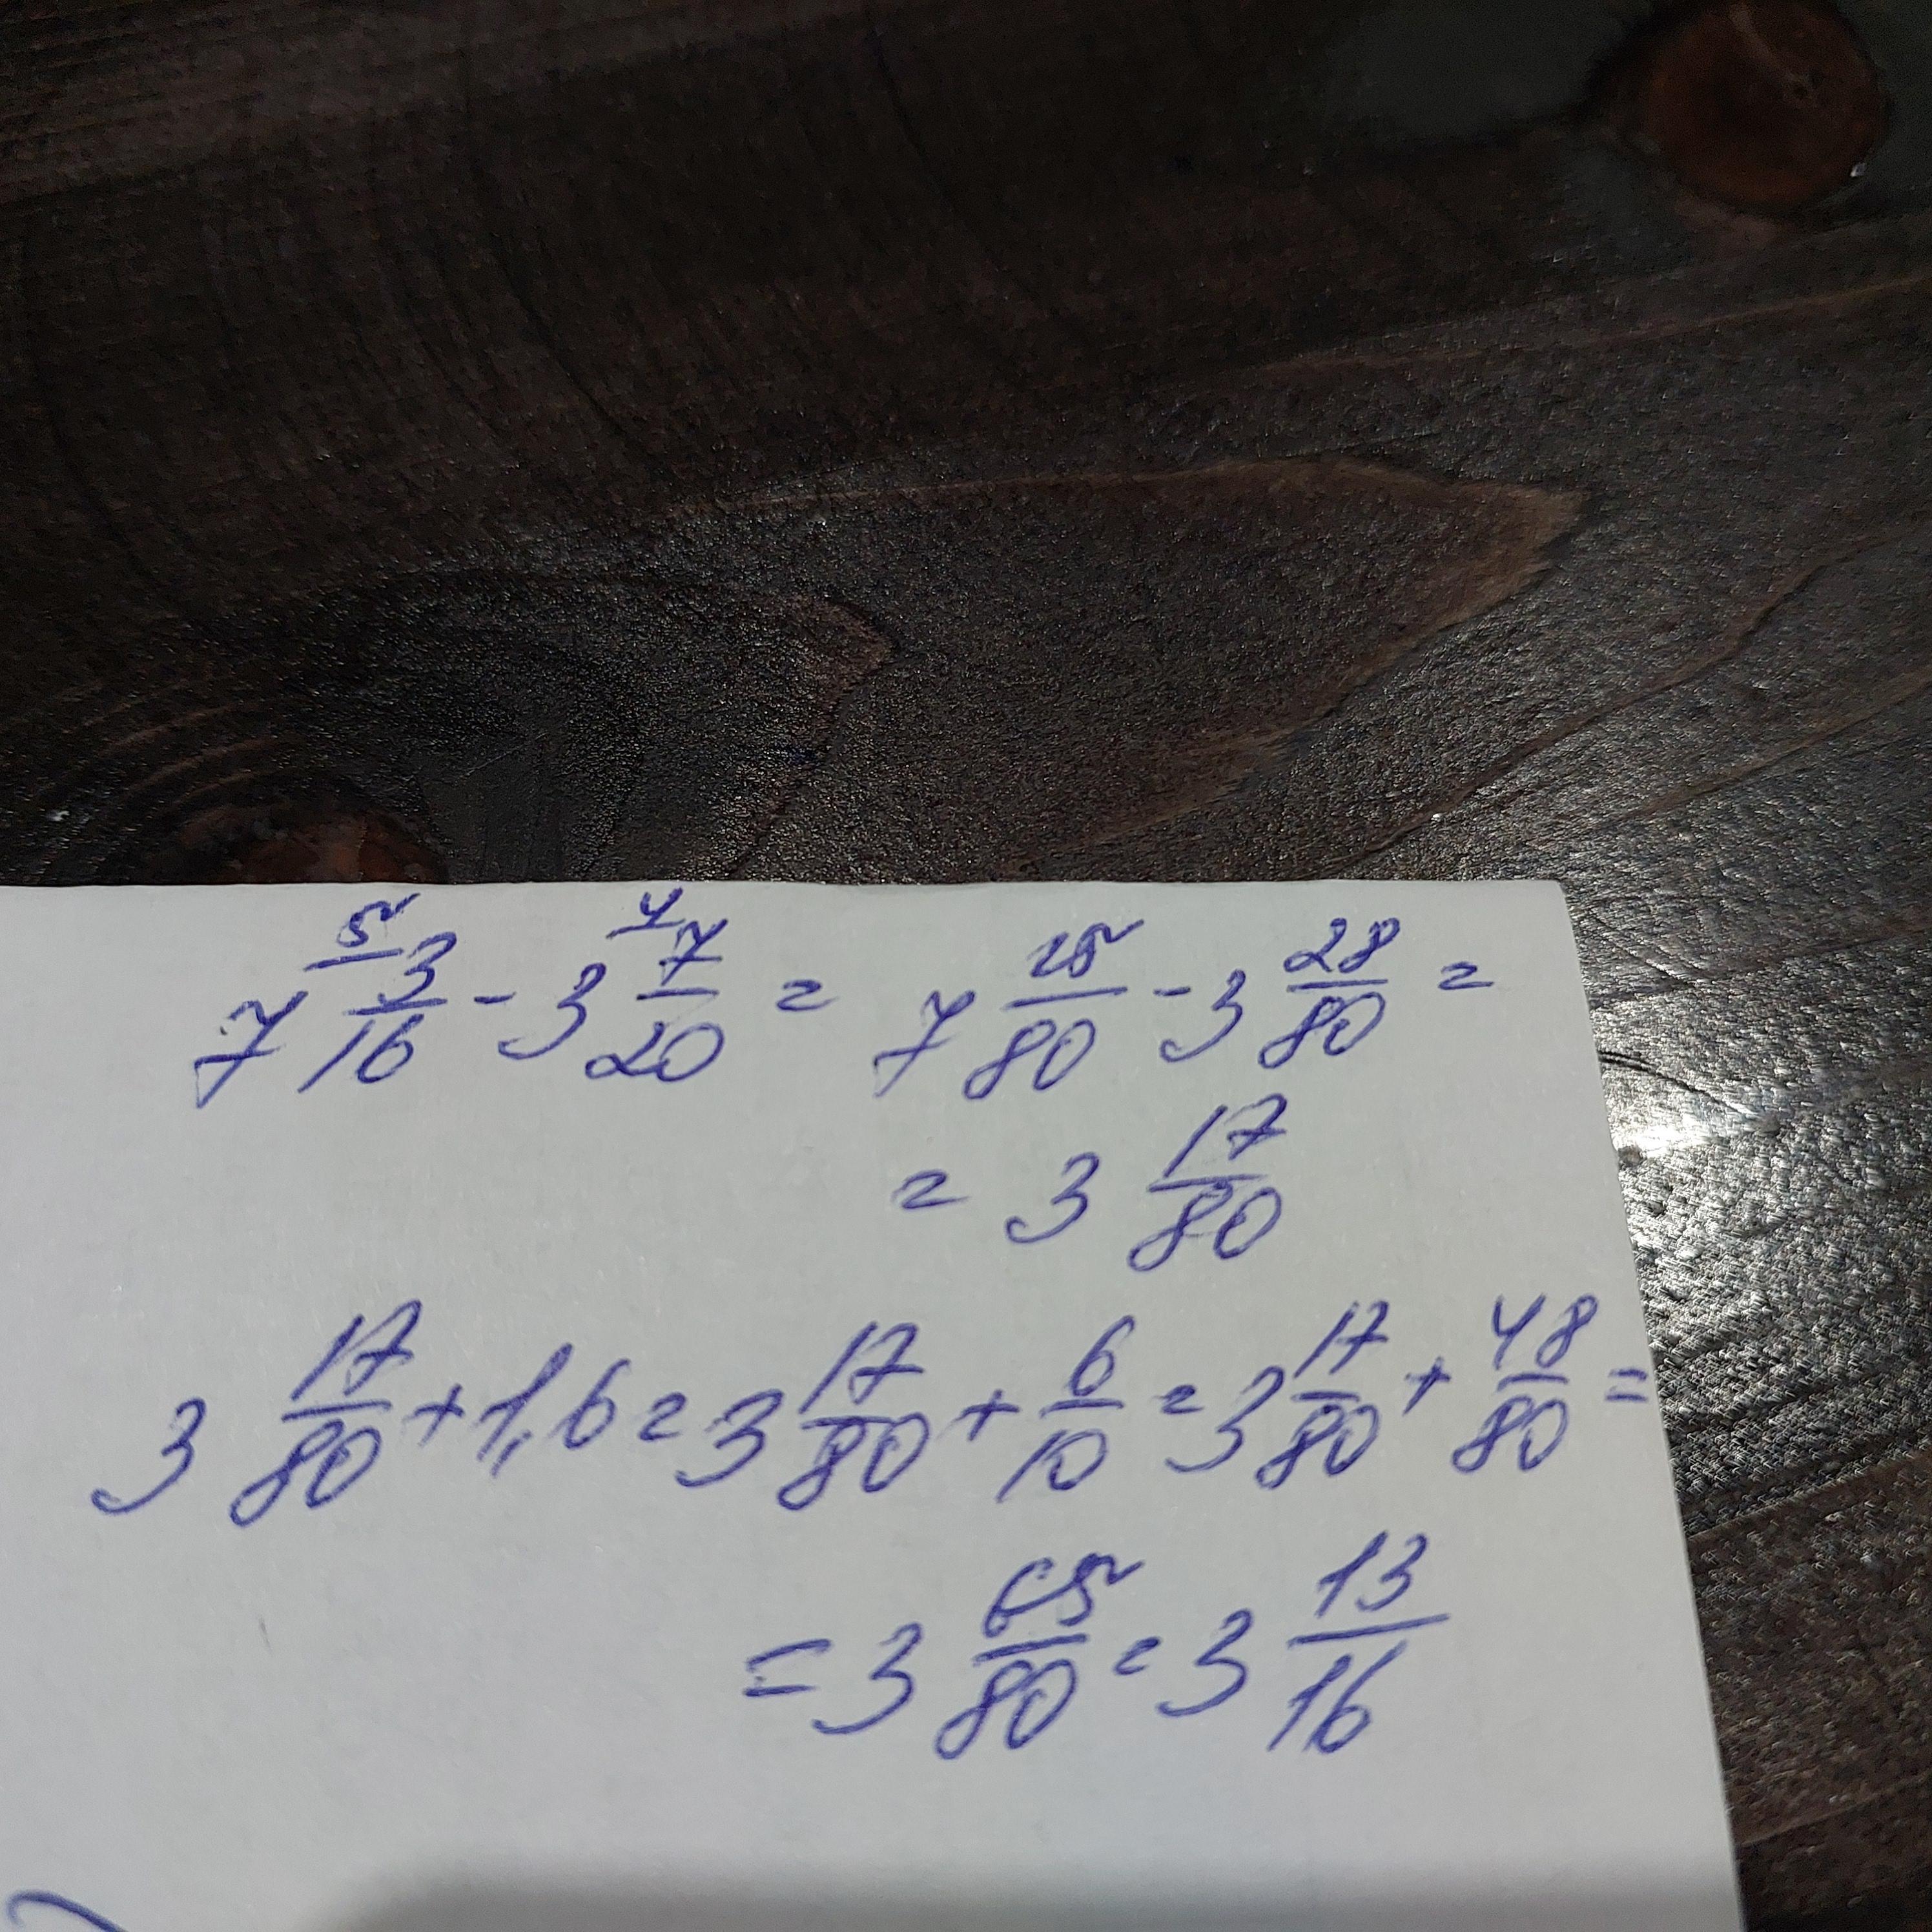 7 5/ 3/16 - 3 4/ 7/20 = 7 15/80 - 3 28/80 =
= 3 17/80
3 17/80 + 1,6 = 3 17/80 + 6/10 = 3 17/80 + 48/80 =
= 3 65/80 = 3 13/16